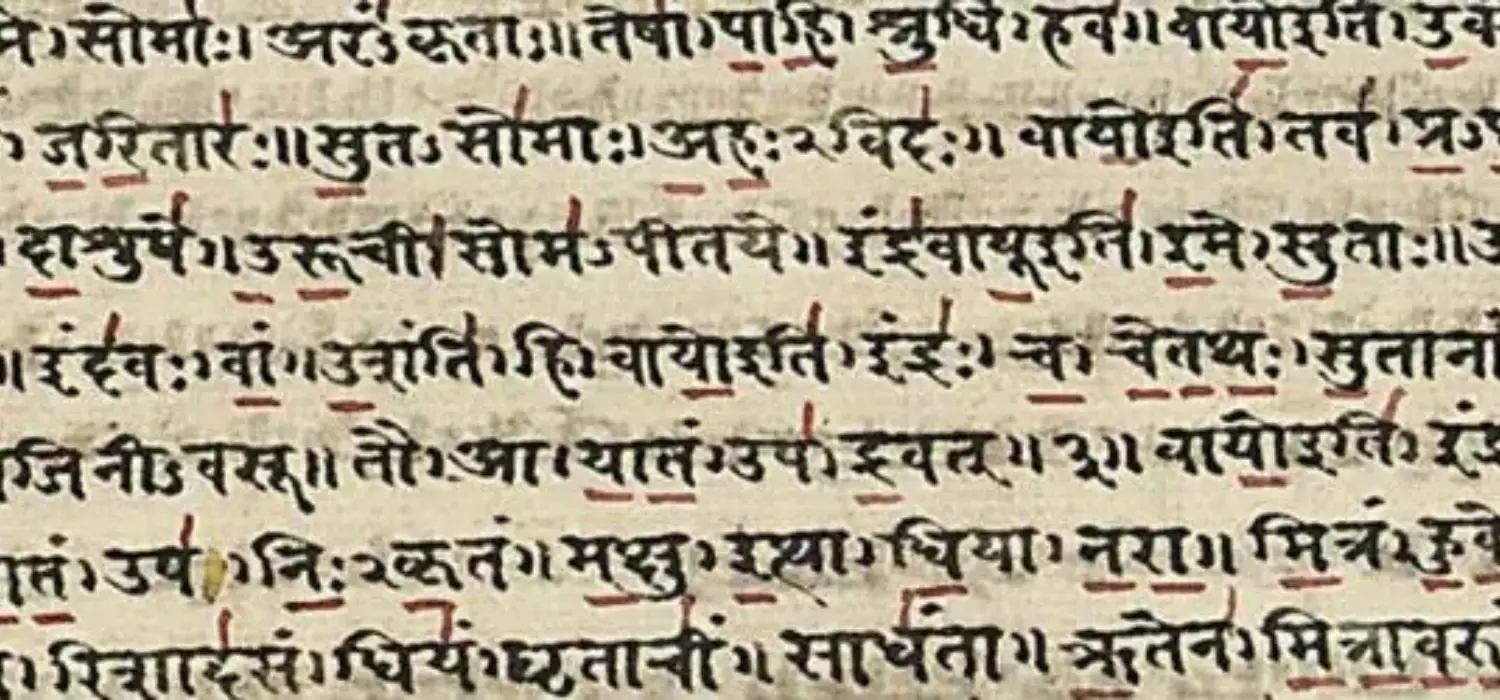 सोमाः। अरंऽकृताः॥ तेषां। पाहि। श्रुधि। हवं॥ वायोइति।
। जरितारः॥ सुतऽसोमाः। अहःऽविदः॥ वायोइति। तव। प्रऽ
। दाशुषे॥ उरूची। सोमऽपीतये॥ इंद्रवायूइति। इमे। सुताः॥ उ
॥ इंदवः। वां॥ उशंति। हि। वायोइति। इंद्रः। च। चेतथः। सुतानां
जिनीऽवसू॥ तौ। आ। यातं। उप। द्रवत्॥ ३॥ वायोइति।
तं। उप। निःऽकृतं॥ मक्षु। इत्था। धिया। नरा॥ मित्रं। हुवे
। रिशादसं। धियं। घृताचीं॥ साधंता॥ ऋतेन। मित्रावरु